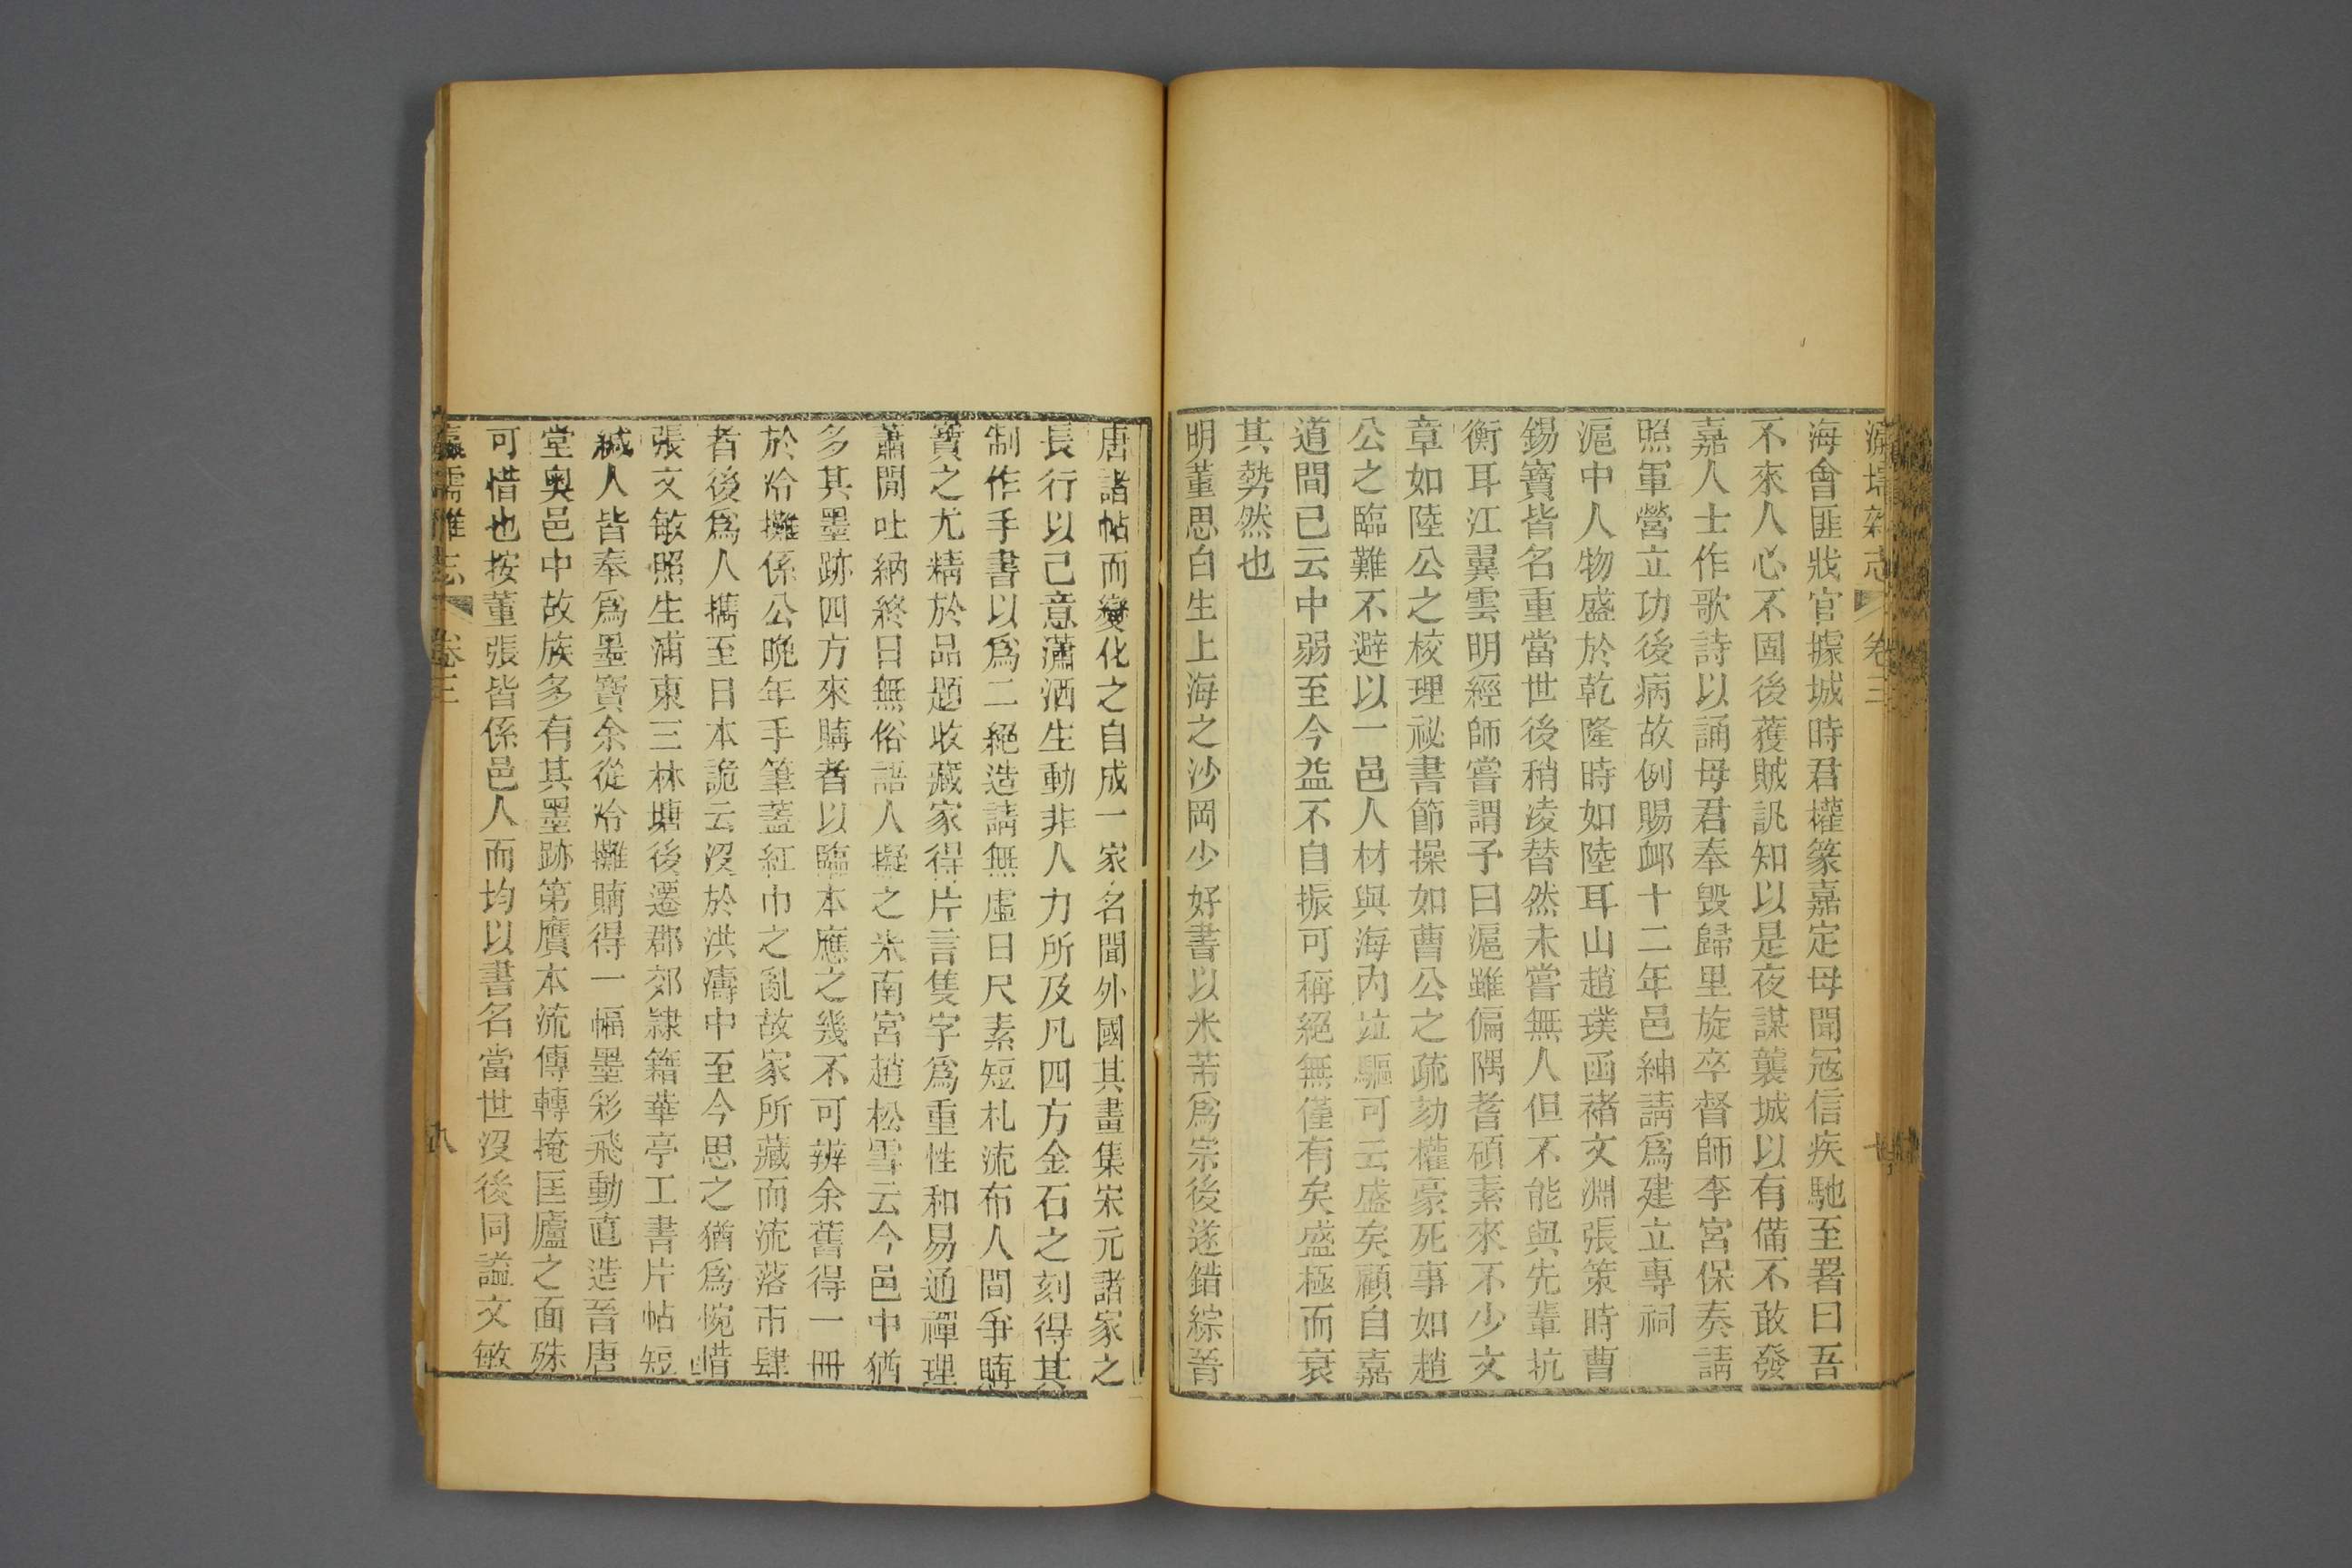 瀛壖雜志 卷三
海會匪戕官據城時君權篆嘉定母聞寇信疾馳至署曰吾
不來人心不固後獲賊訊知以是夜謀襲城以有備不敢發
嘉人士作歌詩以誦母君奉毀歸里旋卒督師李宮保奏請
照軍營立功後病故例賜卹十二年邑紳請爲建立專祠
滬中人物盛於乾隆時如陸耳山趙璞函褚文淵張策時曹
錫寶皆名重當世後稍凌替然未嘗無人但不能與先輩抗
衡耳江翼雲明經師嘗謂予曰滬雖偏隅耆碩素來不少文
章如陸公之校理祕書節操如曹公之疏劾權豪死事如趙
公之臨難不避以一邑人材與海內並驅可云盛矣顧自嘉
道間已云中弱至今益不自振可稱絕無僅有矣盛極而衰
其勢然也
明董思白生上海之沙岡少好書以米芾爲宗後遂錯綜晉
唐諸帖而變化之自成一家名聞外國其畫集宋元諸家之
長行以己意瀟洒生動非人力所及凡四方金石之刻得其
制作手書以爲二絕造請無虛日尺素短札流布人間爭購
寶之尤精於品題收藏家得片言隻字爲重性和易通禪理
蕭閒吐納終日無俗語人擬之米南宮趙松雪云今邑中猶
多其墨跡四方來購者以臨本應之幾不可辨余舊得一冊
於冷攤係公晚年手筆蓋紅巾之亂故家所藏而流落市肆
者後爲人攜至日本詭云沒於洪濤中至今思之猶爲惋惜
張文敏照生浦東三林塘後遷郡郊隸籍華亭工書片帖短
緘人皆奉爲墨寶余從冷攤購得一幅墨彩飛動直造晉唐
堂奧邑中故族多有其墨跡第贋本流傳轉掩匡廬之面殊
可惜也按董張皆係邑人而均以書名當世沒後同謚文敏
瀛壖雜志 卷三 八